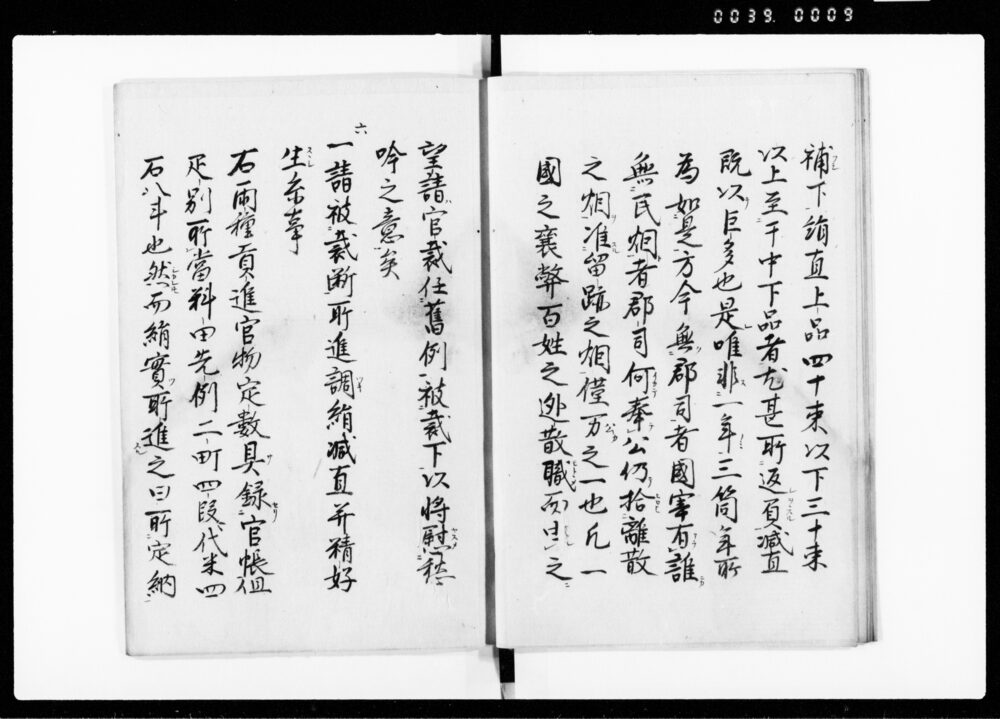 0039.0009
補下絹直上品四十束以下三十束
以上至于中下品者尤甚所返負減直
既以巨多也是唯非一年三箇年所
為如是方今無郡司者國宰有誰
無民烟者郡司何奉公仍拾離散
之烟准留跡之烟僅万之一也凡一
國之衰弊百姓之逃散職而由之
望請官裁任舊例被裁下以將慰愁
吟之意矣
六
一請被裁断所進調絹減直并精好
生糸事
右兩種貢進官物定數具録官帳但
疋別所當料田先例二町四段代米四
石八斗也然而絹實所進之日所定納